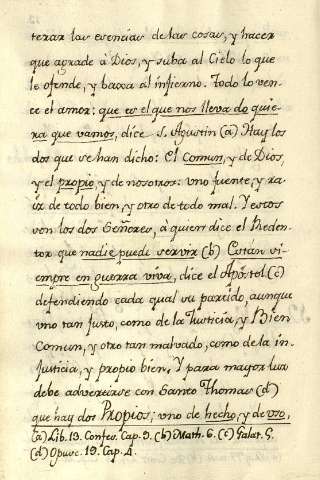 terar las esencias de las cosas, y hacer
que agrade à Dios, y suba al Cielo lo que
le ofende, y baxa al infierno. Todo lo ven-
ce el amor: que es el que nos lleva do quie-
ra que vamos, dice S. Agustin (a) Hay los
dos que se han dicho: el Comun, y de Dios,
y el propio, y de nosotros: uno fuente, y ra-
iz de todo bien, y otro de todo mal. Y estos
son los dos Señores, à quien dice el Reden-
tor que nadie puede servir (b) Están si-
empre en guerra viva, dice el Apóstol (c)
defendiendo cada qual su partido, aunque
uno tan justo, como de la Justicia, y Bien
Comun, y otro tan malvado, como de la in-
justicia, y propio bien. Y para mayor luz
debe advertirse con Santo Thomas (d)
que hay dos Propios; uno de hecho, y de uso,
(a) Lib. 13. Confes. Cap. 9. (b) Math. 6. (c) Galat. 5.
(d) Opusc. 19. Cap. 4.